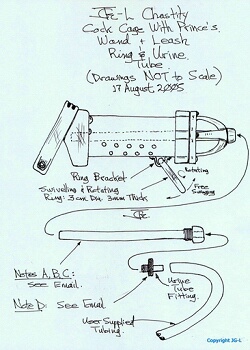 JG-L Chastity
Cock Cage With Prince's
Wand + Leash
Ring & Urine
Tube
(Drawings NOT to Scale)
17 August, 2005
Ring Bracket
Rotating
Swivelling & Rotating
Ring: 3 cm Dia. 3mm Thick
Free
Swinging
Notes A, B, C:
see Email.
Note D: See Email
Urine
Tube
Fitting.
User Supplied
Tubing.
Copyright JG-L